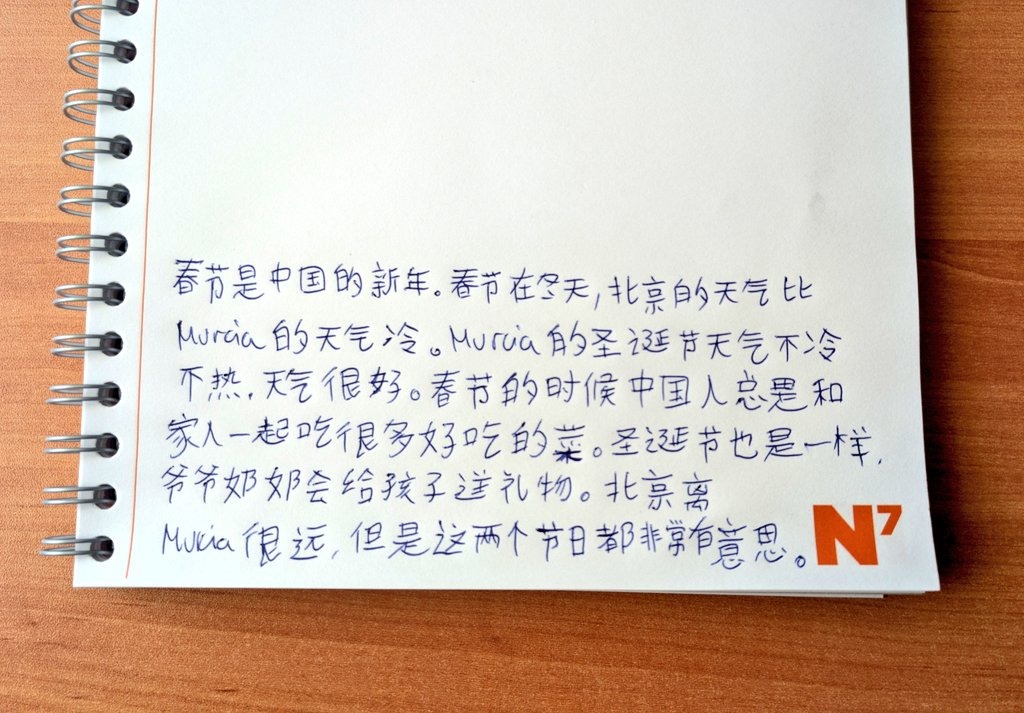 春节是中国的新年。春节在冬天,北京的天气比
Murcia的天气冷。Murcia的圣诞节天气不冷
不热,天气很好。春节的时候中国人总是和
家人一起吃很多好吃的菜。圣诞节也是一样,
爷爷奶奶会给孩子送礼物。北京离
Murcia很远,但是这两个节日都非常有意思。
N7